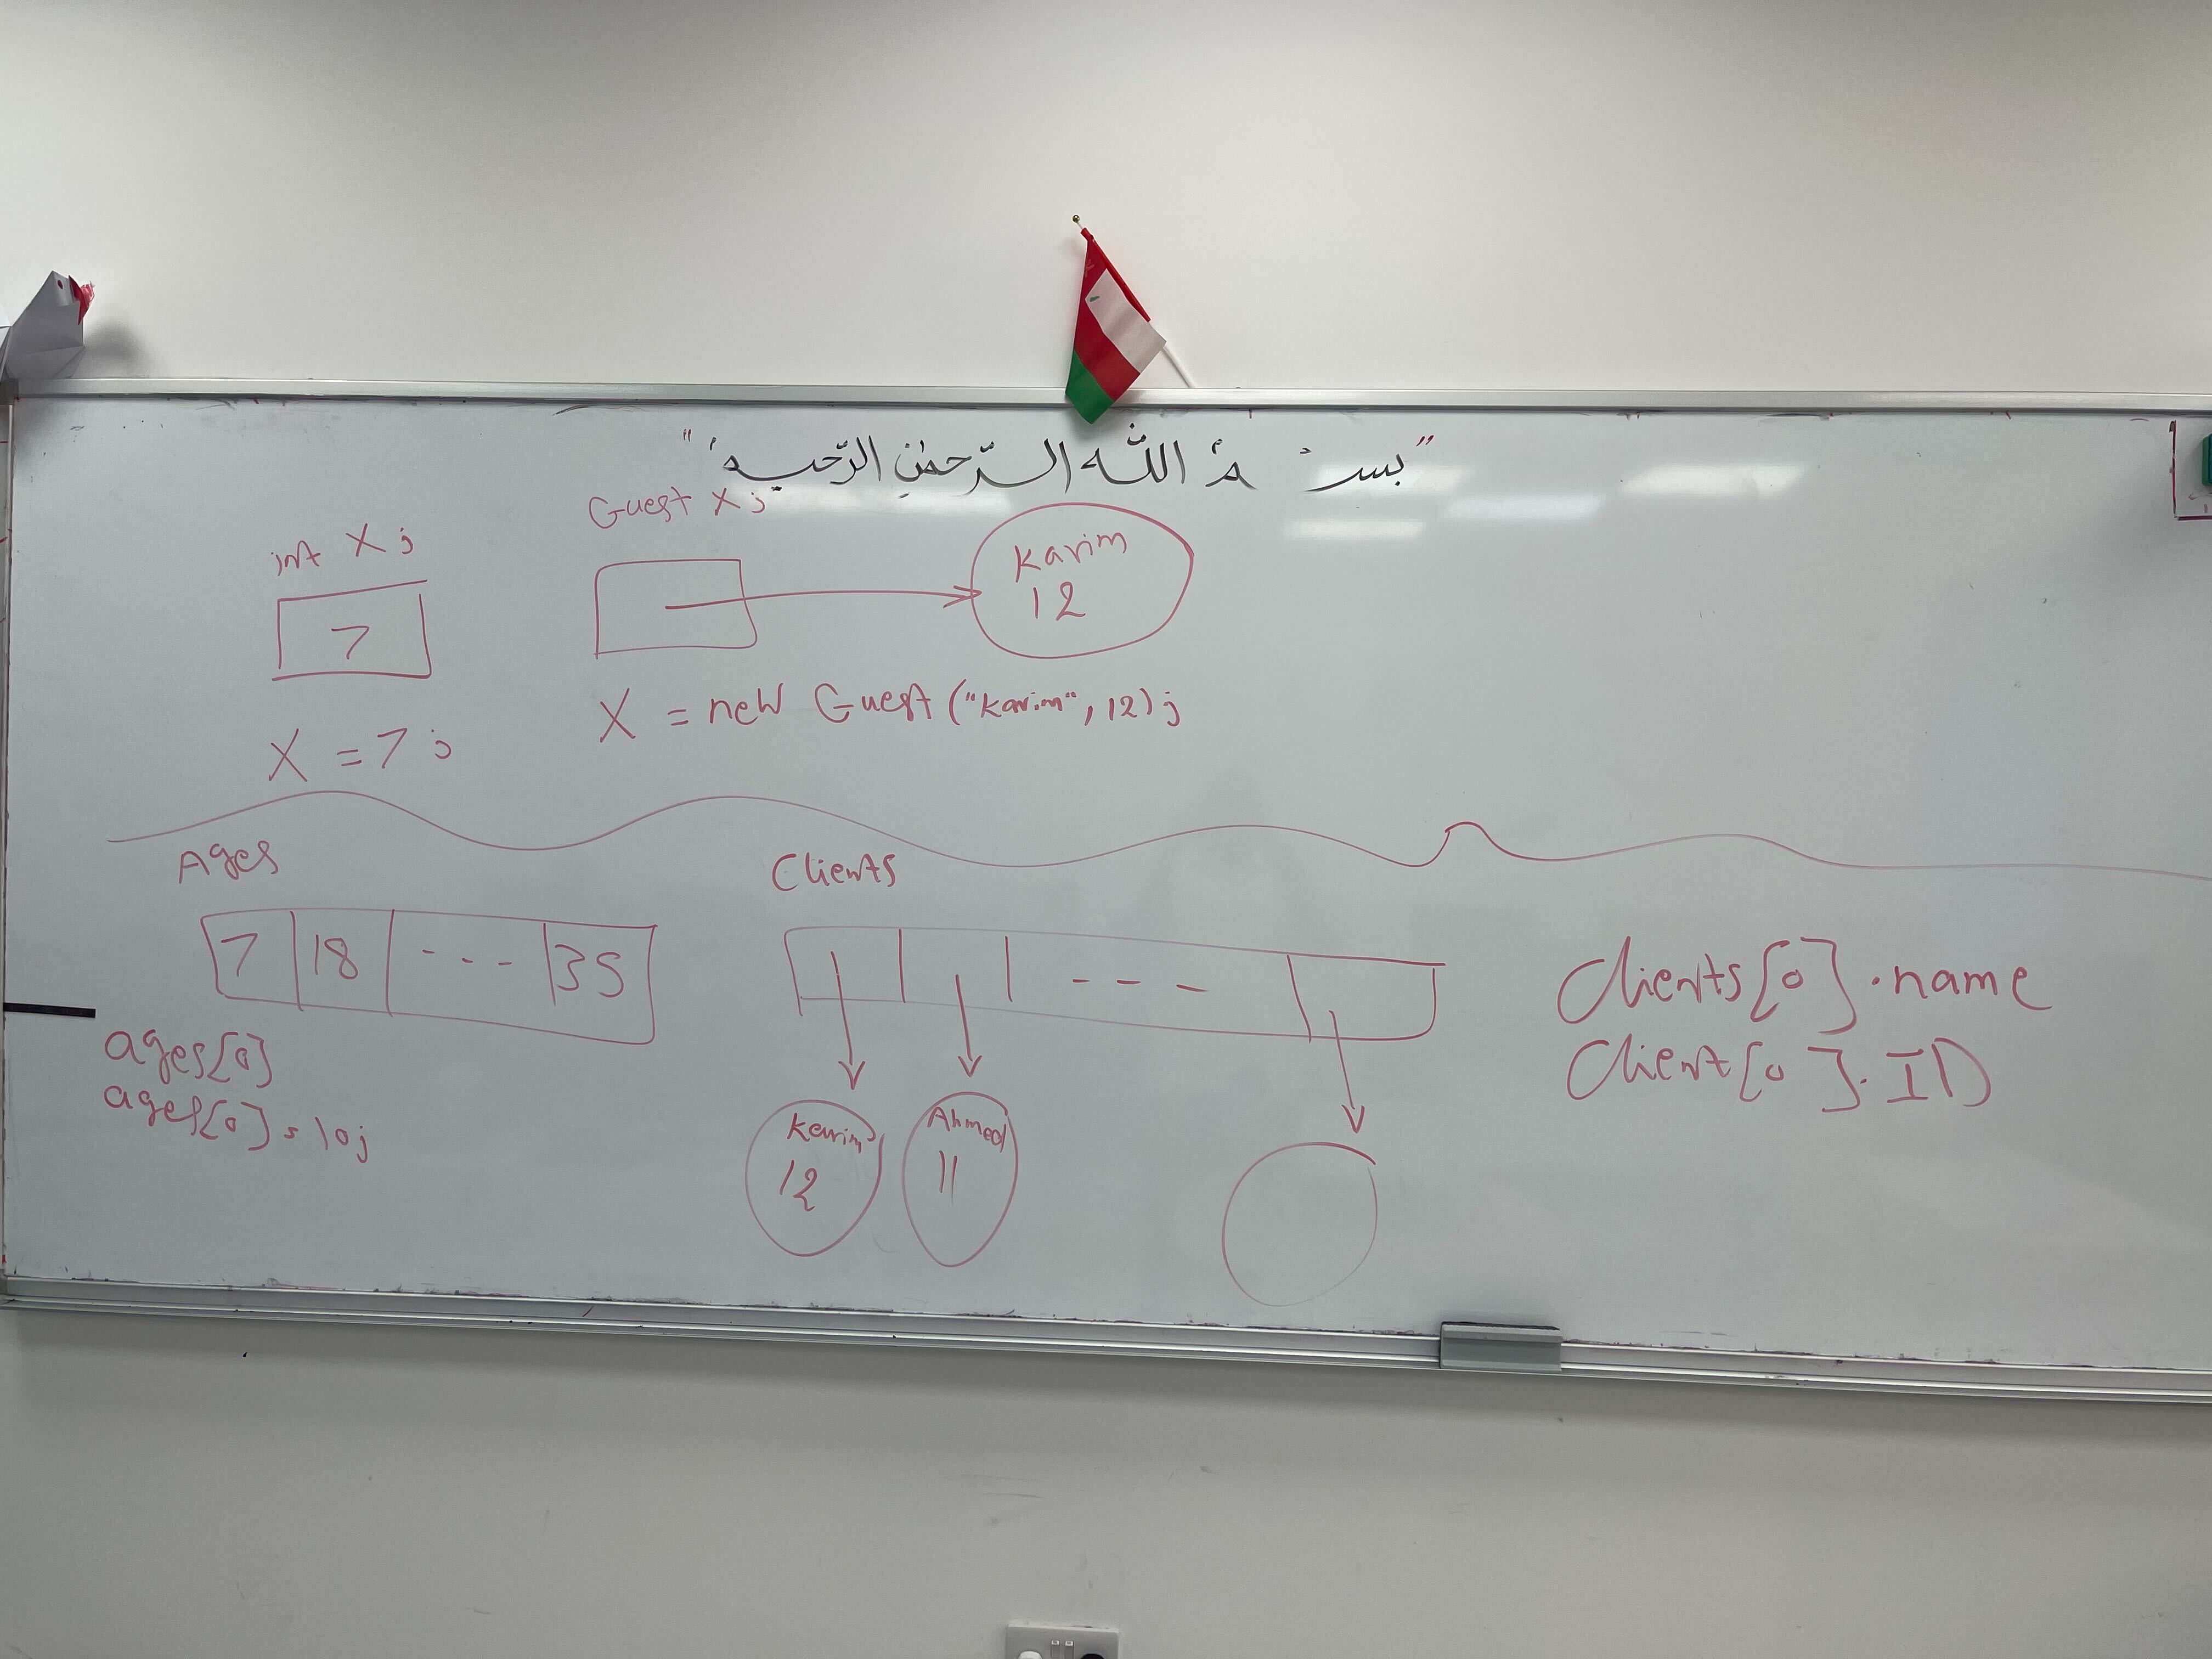 "بسم الله الرّحمٰن الرّحيم"
int X;
7
X = 7;
Guest X;
Karim
12
X = new Guest ("Karim", 12);
Ages
7 18 --- 35
ages[0]
ages[0] = 10;
Clients
---
Karim
12
Ahmed
11
Clients[0].name
Client[0].ID